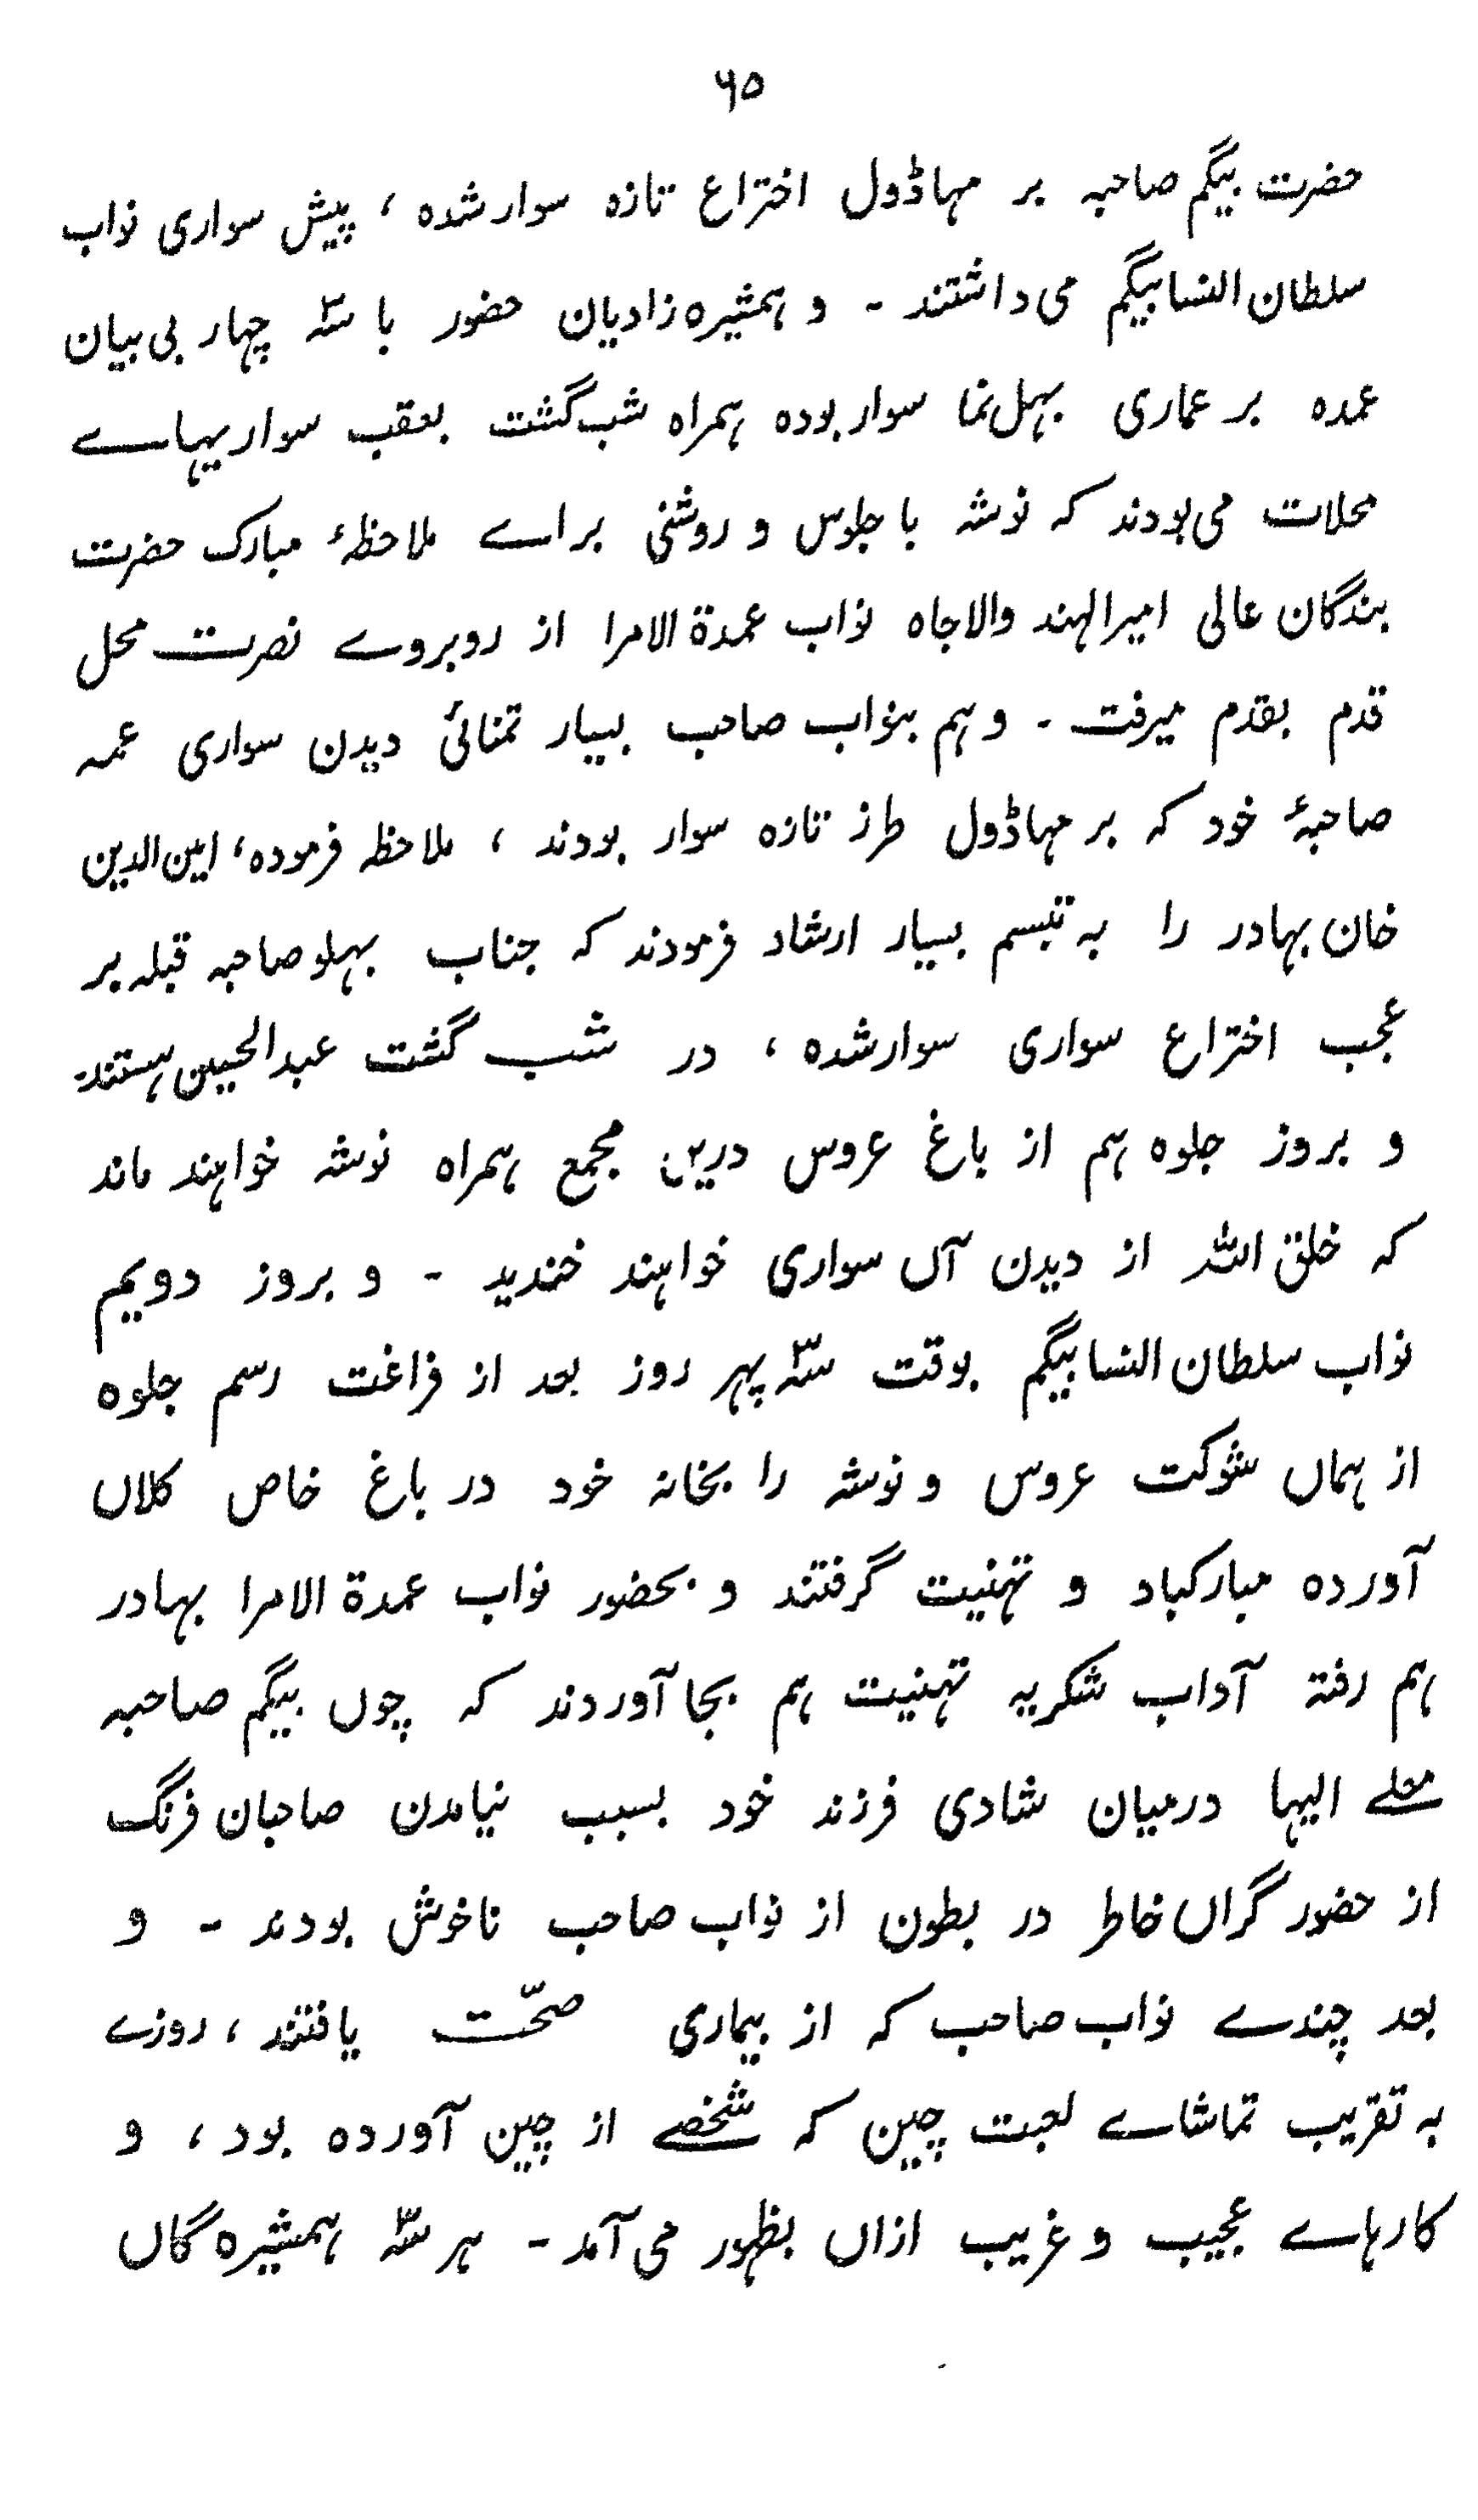 ۶۵
حضرت بیگم صاحبہ بر مہاڈول اختراع تازہ سوار شدہ ، پیش سواری نواب
سلطان النسا بیگم می داشتند ۔ و ہمشیرہ زادیان حضور با سہ چہار بی بیان
عمدہ بر عماری بہل نما سوار بودہ ہمراہ شب گشت بعقب سواریہاے
محلات می بودند کہ نوشہ با جلوس و روشنی براے ملاحظۂ مبارک حضرت
بندگان عالی امیر الہند والاجاہ نواب عمدۃ الامرا از روبروے نصرت محل
قدم بقدم میرفت ۔ و ہم بنواب صاحب بسیار تمنائی دیدن سواری عمہ
صاحبۂ خود کہ بر مہاڈول طرز تازہ سوار بودند ، ملاحظہ فرمودہ ، امین الدین
خان بہادر را بہ تبسم بسیار ارشاد فرمودند کہ جناب بہلو صاحبہ قبلہ بر
عجب اختراع سواری سوار شدہ ، در شب گشت عبد الحسین ہستند۔
و بروز جلوہ ہم از باغ عروس دریں مجمع ہمراہ نوشہ خواہند ماند
کہ خلق اللہ از دیدن آں سواری خواہند خندید ۔ و بروز دویم
نواب سلطان النسا بیگم بوقت سہ پہر روز بعد از فراغت رسم جلوہ
از ہماں شوکت عروس و نوشہ را بخانہ خود در باغ خاص کلاں
آوردہ مبارکباد و تہنیت گرفتند و بحضور نواب عمدۃ الامرا بہادر
ہم رفتہ آداب شکریہ تہنیت ہم بجا آوردند کہ چوں بیگم صاحبہ
معلے الیہا درمیان شادی فرزند خود بسبب نیامدن صاحبان فرنگ
از حضور گراں خاطر در بطون از نواب صاحب ناخوش بودند ۔ و
بعد چندے نواب صاحب کہ از بیماری صحّت یافتند ، روزے
بہ تقریب تماشاے لعبت چین کہ شخصے از چین آوردہ بود ، و
کارہاے عجیب و غریب ازاں بظہور می آمد ۔ ہر سہ ہمشیرہ گاں